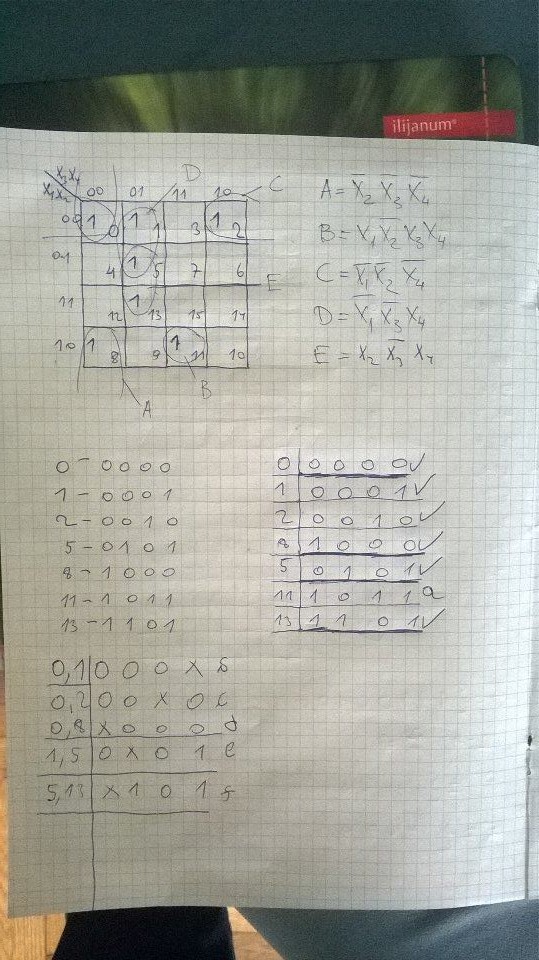 ilijanum®
X₃X₄
X₁X₂ 00 01 11 10 C
D
00 1 0 1 1 3 1 2
01 4 1 5 7 6
E
11 12 1 13 15 14
10 1 8 9 1 11 10
A B
A = X̅₂ X̅₃ X̅₄
B = X₁ X̅₂ X₃ X₄
C = X̅₁ X̅₂ X̅₄
D = X̅₁ X̅₃ X₄
E = X₂ X̅₃ X₄
0 - 0000
1 - 0001
2 - 0010
5 - 0101
8 - 1000
11 - 1011
13 - 1101
0 0 0 0 0 ✓
1 0 0 0 1 ✓
2 0 0 1 0 ✓
8 1 0 0 0 ✓
5 0 1 0 1 ✓
11 1 0 1 1 a
13 1 1 0 1 ✓
0,1 0 0 0 X b
0,2 0 0 X 0 c
0,8 X 0 0 0 d
1,5 0 X 0 1 e
5,13 X 1 0 1 f